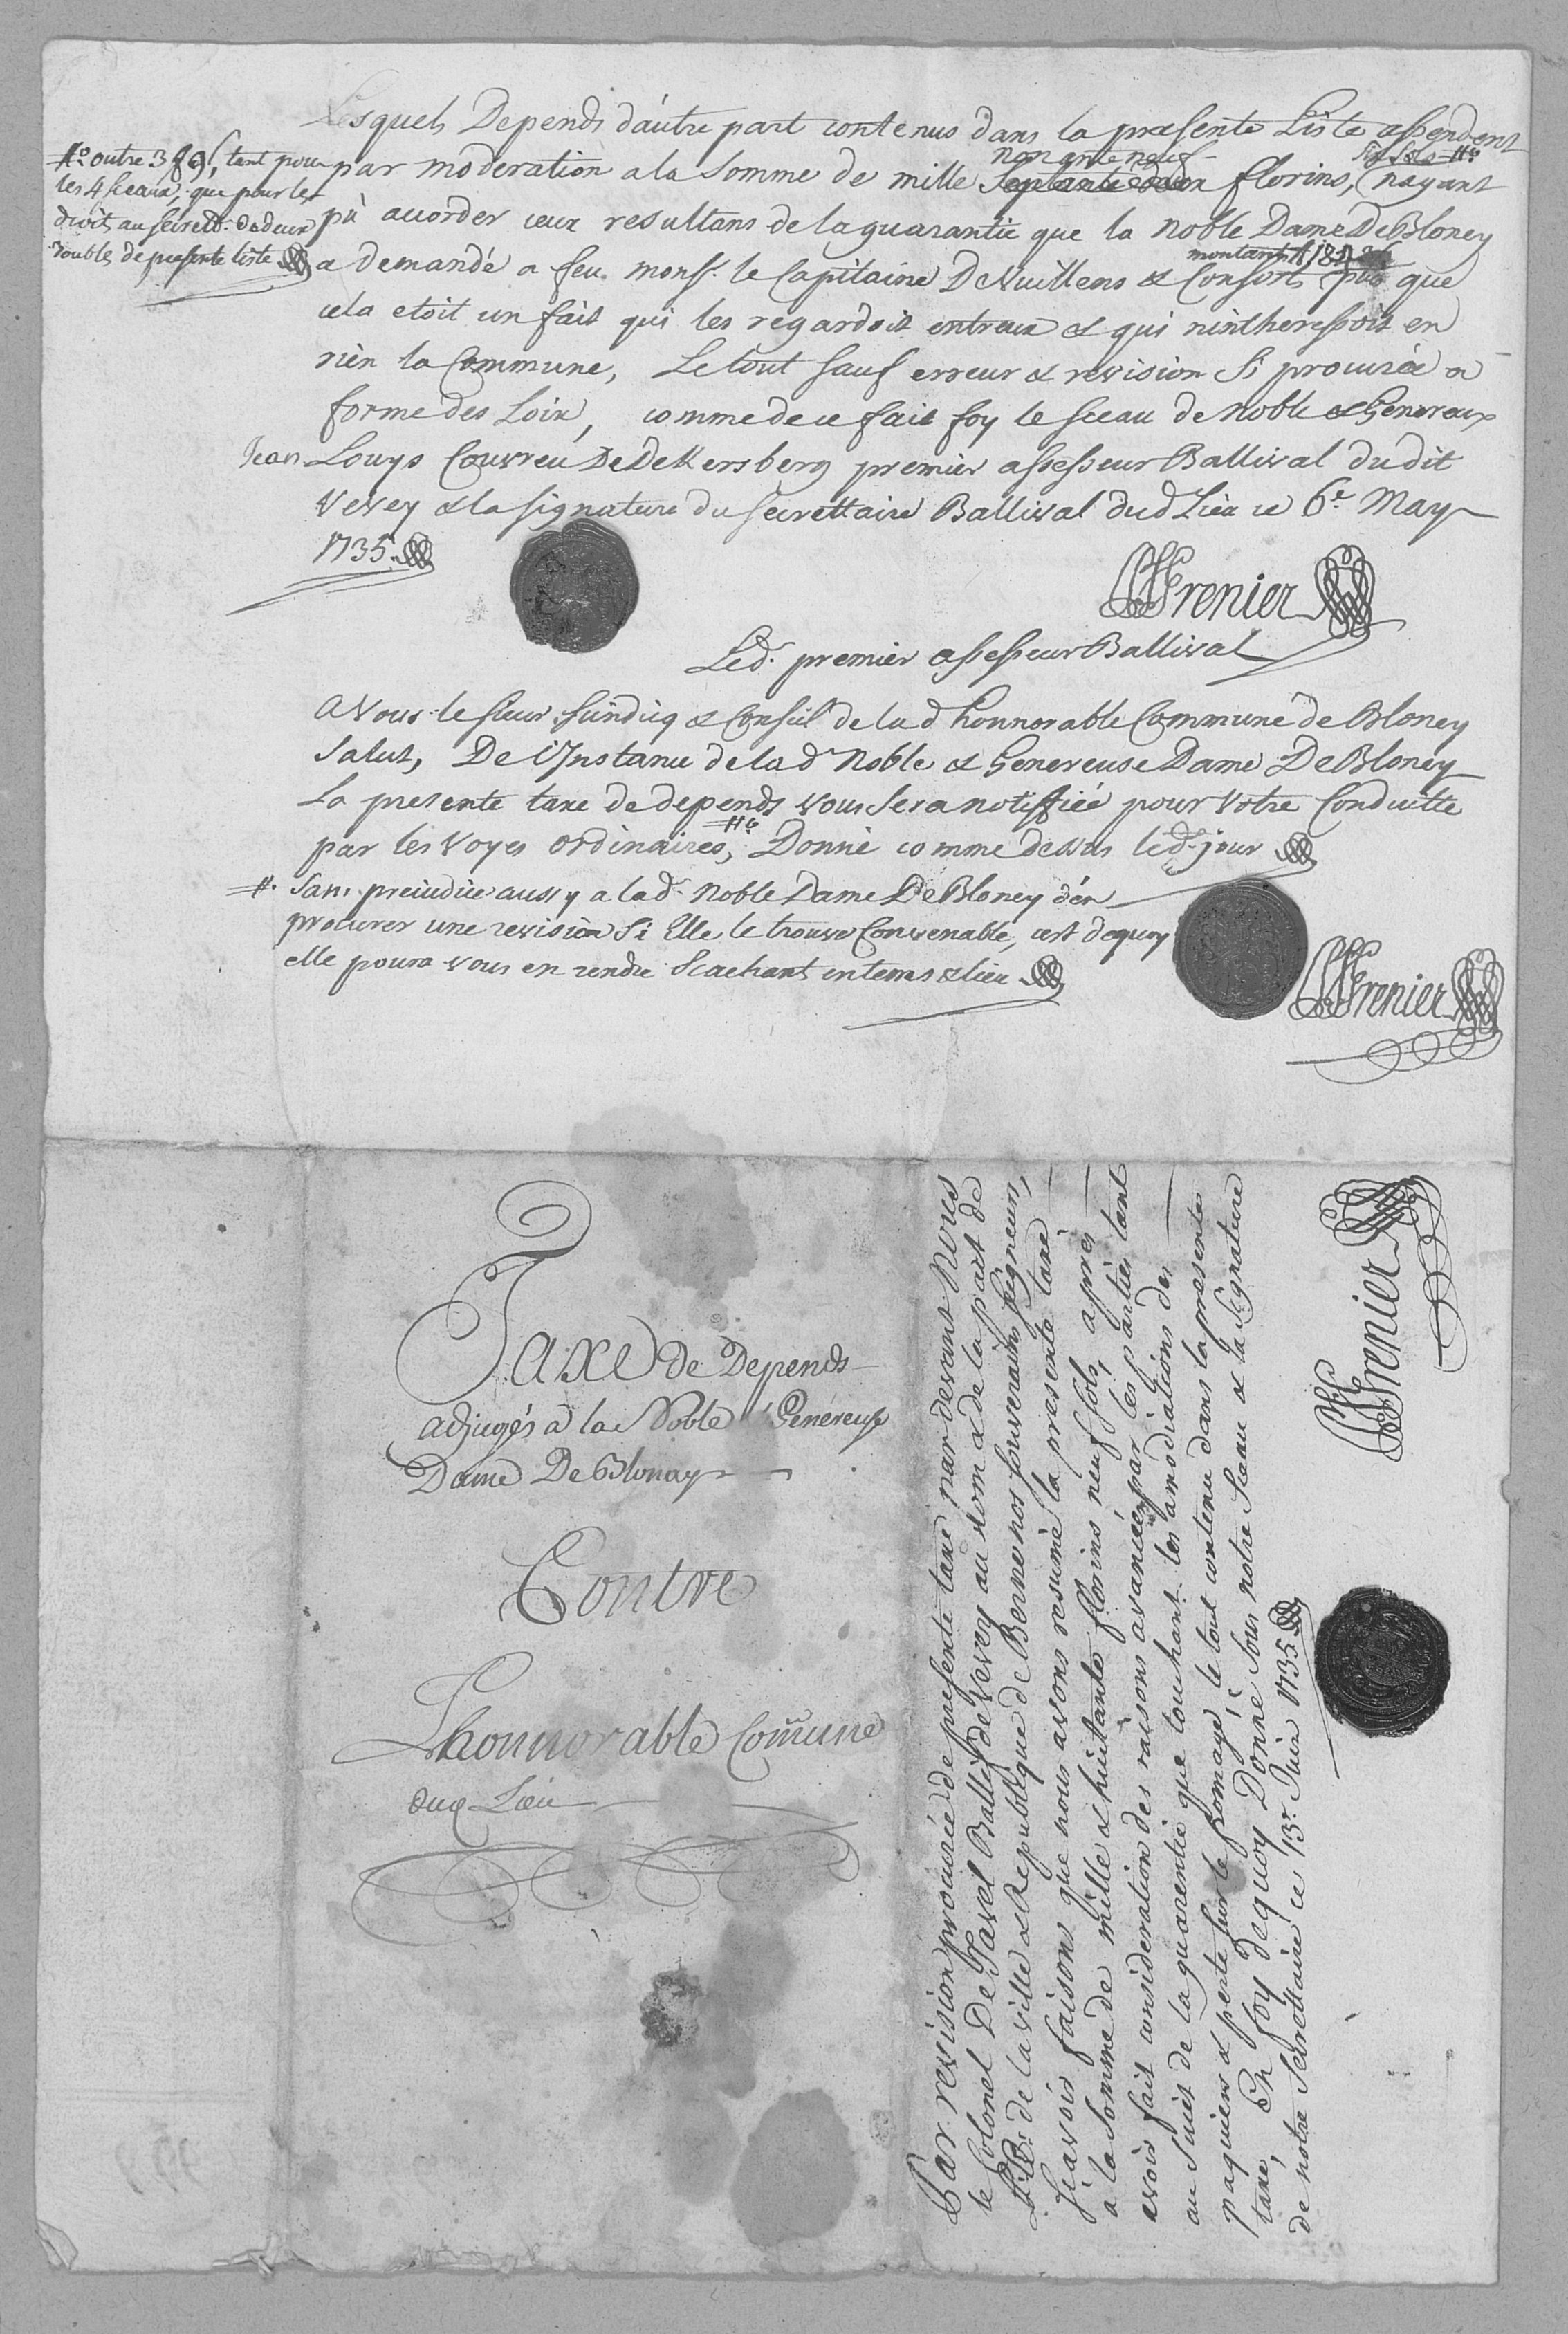 Lesquels Depends d'autre part contenus dans la presente Liste assendent
par moderation a la somme de mille nonante neuf florins, six sols #. nayant
pû acorder ceux resultans de la guarantie que la noble Dame De Bloney
a demandé a feu mons.r le Capitaine DeVuillens & Consorts montant puis que
cela etoit un fait qui les regardoit entreux & qui nintheressoit en
rien la Commune, Le tout sauf erreur & revision si procurée a
forme des Loix, comme de ce fait foy le sceau de noble & Genereux
Jean Louys Couvreu De Dekersberg premier assesseur Ballival du dit
Vevey & la signature du secrettaire Ballival dud Lieu ce 6.e May
1735.
#. outre 3 tant pour
les 4 sceaux, que pour les
droits au secrett. de deux
doubles de presente liste
Grenier
Led. premier assesseur Ballival
A Vous le sieur sindicq & Conseil de lad honnorable Commune de Bloney
Salut, De l'Instance de lad Noble & Genereuse Dame De Bloney
La presente taxe de depends vous sera notiffiée pour Votre Conduitte
par les Voyes ordinaires, #. Donné comme dessus led. jour
#. sans prejudice aussy a lad. Noble Dame De Bloney d'en
procurer une revision si Elle le trouve Convenable, cest dequoy
elle poura vous en rendre scachants en tems & lieu
Grenier
Taxe de Depends
adjugés à la Noble & Genereuse
Dame De Blonay
Contre
L'honnorable Com̃une
dud Lieu
Par revision procurée de presente taxe par devant Nous
le Colonel De Tavel Ballif de Vevey au nom & de la part de
LL. EE. de la ville & Republique de Berne nos souverains seigneurs,
sçavoir faisons que nous avons resumé la presente taxe
a la somme de mille & huitante florins neuf sols, apres
avoir fait consideration des raisons avancées par les parties tant
au sujet de la guarentie que touchant les amodiations des
paquiers & perte sur le fromage le tout contenu dans la presente
taxe, En foy dequoy Donné sous notre sceau & la signature
de notre secrettaire ce 13.e Juin 1735
Grenier